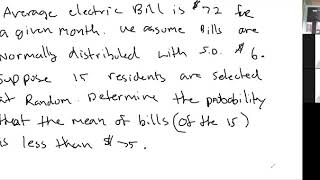 Average electric Bill is $72 for
a given month. we assume Bills are
Normally distributed with S.D. $6.
Suppose 15 residents are selected
at Random. Determine the probability
that the mean of bills (of the 15)
is less than $75.